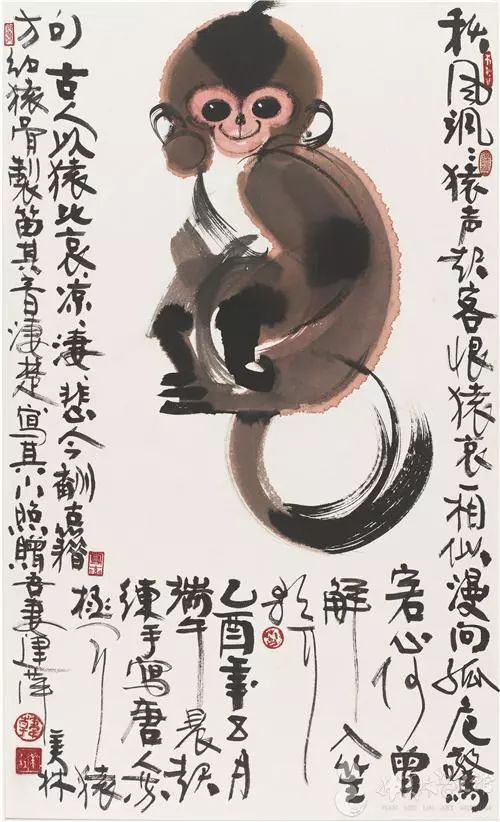 秋风飒:猿声起客恨猿哀一相似漫向孤危驚
客心何曾
解入笙
歌耳
乙酉年五月
端午晨起
練手写唐人苏
拯猿
句 古人以猿比哀、凉、凄、悲今翻古籍
方知猿骨製笛其音凄楚寫其小照贈吾妻建萍
美林